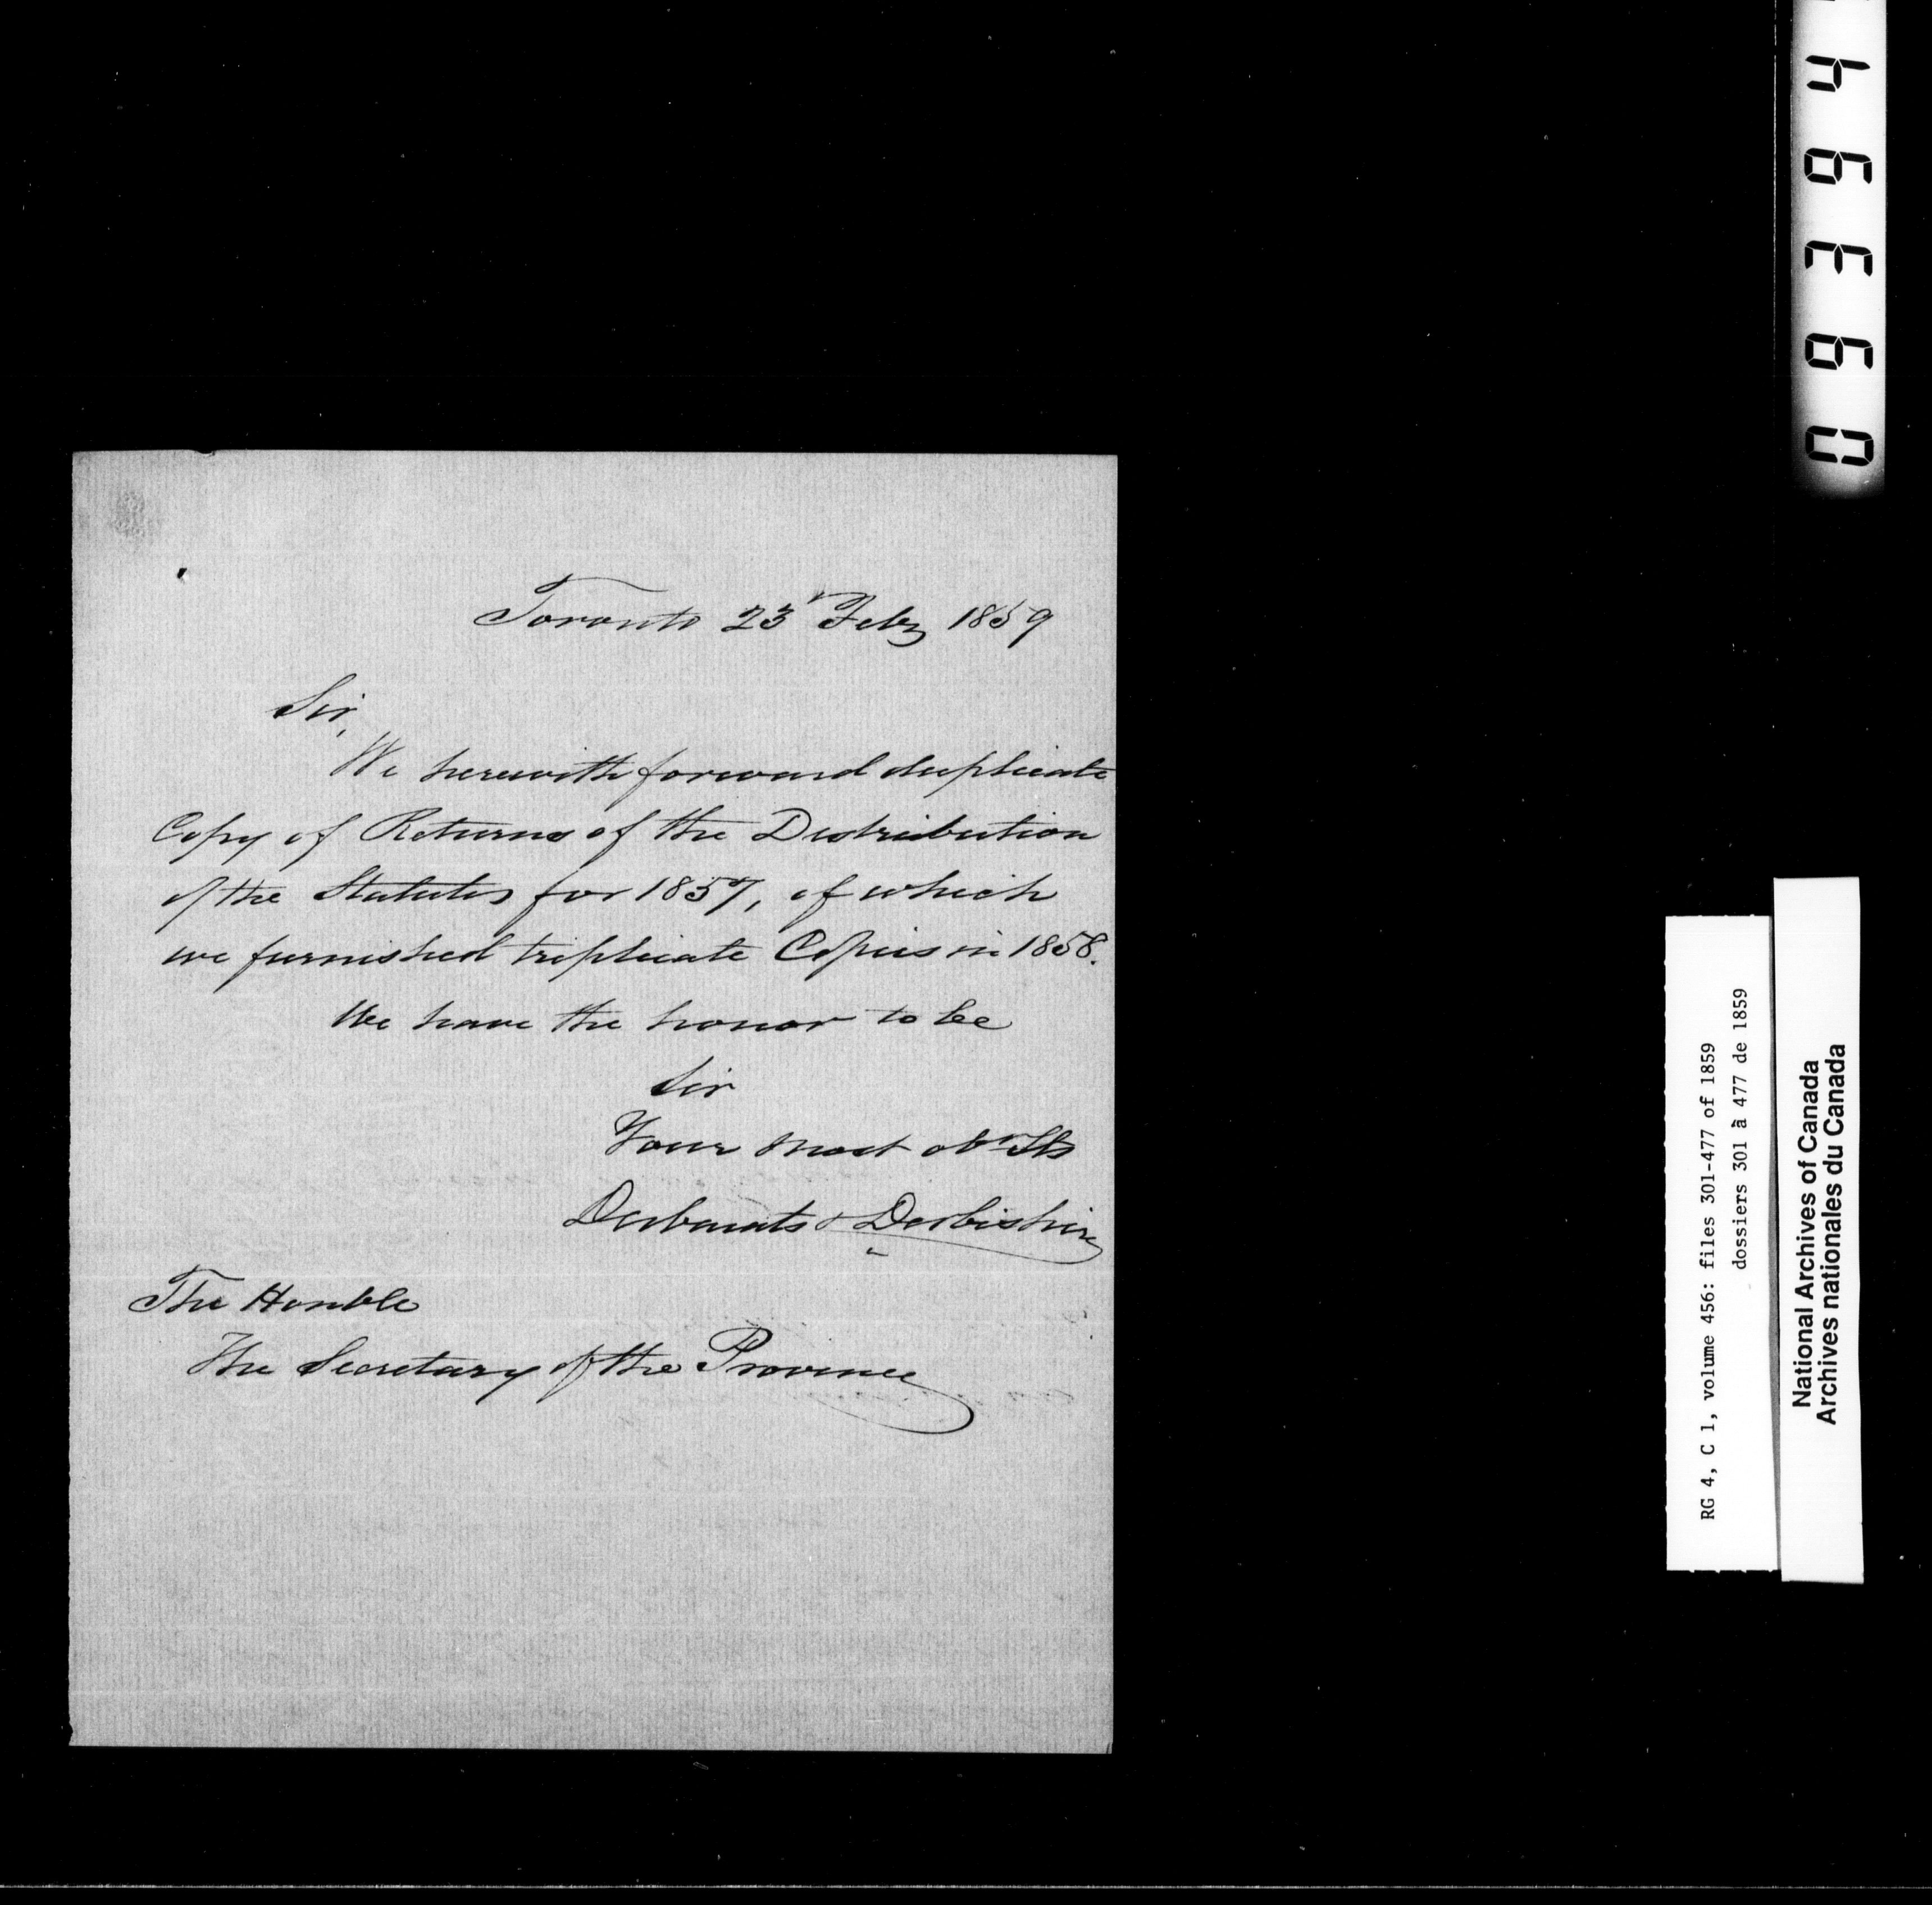 Toronto 23 Feby 1859
Sir,
We herewith forward duplicate
Copy of Returns of the Distribution
of the Statutes for 1857, of which
we furnished triplicate Copies in 1858.
We have the honor to be
Sir
Your most obt Sts
Desbarats & Derbishire
The Honble
The Secretary of the Province
RG 4, C 1, volume 456: files 301-477 of 1859
dossiers 301 à 477 de 1859
National Archives of Canada
Archives nationales du Canada